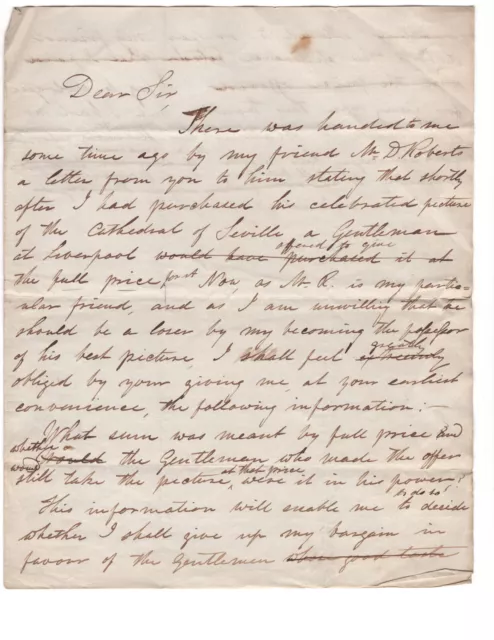 Dear Sir,
There was handed to me
some time ago by my friend Mr D Roberts
a letter from you to him stating that shortly
after I had purchased his celebrated picture
of the Cathedral of Seville, a Gentleman
offered to give
at Liverpool would have purchased it at
the full price for it Now, as Mr. R. is my partic-
ular friend, and as I am unwilling that he
should be a loser by my becoming the possessor
of his best picture, I shall feel
greatly
obliged by your giving me, at your earliest
convenience, the following information:-
What sum was meant by full price and
whether
would
Should the Gentleman who made the offer
at that price
still take the picture, were it in his power?
or do so
This information will enable me to decide
whether I shall give up my bargain in
favour of the Gentleman whose good taste